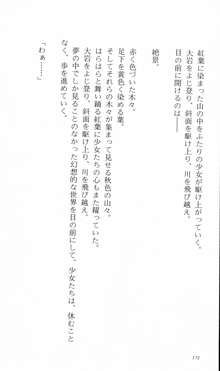 紅葉に染まった山の中をふたりの少女が駆け上がっていく。
大岩をよじ登り、斜面を駆け上り、川を飛び越え。
目の前に開けるのは――
絶景。
赤く色づいた木々。
足下を黄色く染める葉。
そしてそれらの木々が集まって見せる秋色の山々。
はらはらと舞い踊る紅葉に少女たちの心もまた躍っていた。
大岩をよじ登り、斜面を駆け上り、川を飛び越え。
夢の中でしか見ることのなかった幻想的な世界を目の前にして、少女たちは、休むこと
なく、歩を進めていく。
「わぁ……」
172